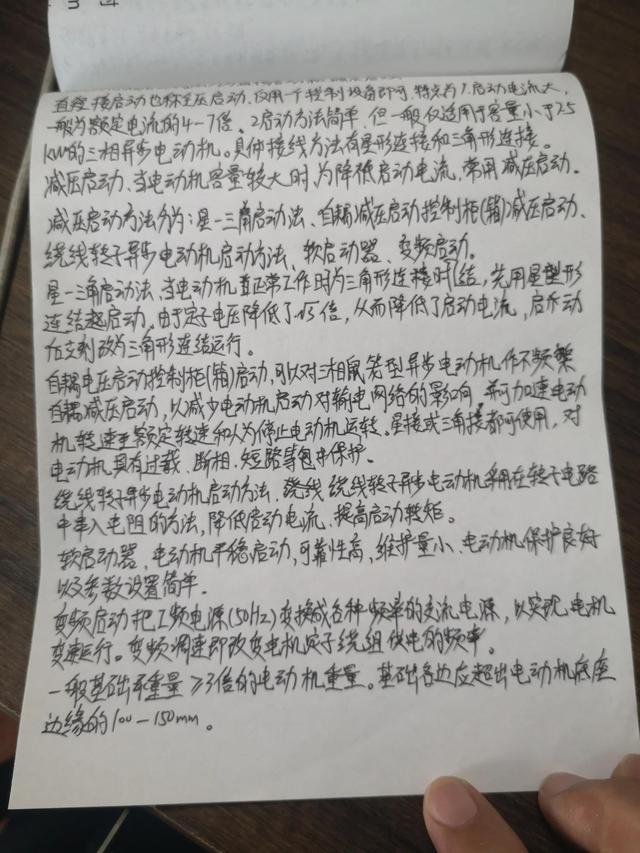 直接启动也称全压启动.仅用一个控制设备即可.特点为1.启动电流大,
一般为额定电流的4-7倍。2启动方法简单.但一般仅适用于容量小于7.5
kW的三相异步电动机。具体接线方法有星形连接和三角形连接。
减压启动、当电动机容量较大时,为降低启动电流,常用减压启动.
减压启动方法分为:星-三角启动法、自耦减压启动控制柜(箱)减压启动、
绕线转子异步电动机启动方法、软启动器、变频启动。
星-三角启动法、当电动机正常工作时为三角形连接时,先用星型形
连结起启动,由于定子电压降低了√3倍,从而降低了启动电流,启动
后立刻改为三角形连结运行。
自耦电压启动控制柜(箱)启动,可以对三相鼠笼型异步电动机作不频繁
自耦减压启动,以减少电动机启动对输电网络的影响,并可加速电动
机转速至额定转速和人为停止电动机运转。星接或三角接都可使用,对
电动机具有过载.断相.短路等保护。
绕线转子异步电动机启动方法.绕线 绕线转子异步电动机采用在转子电路
中串入电阻的方法,降低启动电流、提高启动转矩。
软启动器、电动机平稳启动,可靠性高,维护量小、电动机保护良好
以及参数设置简单.
变频启动把工频电源(50Hz)变换成各种频率的交流电源,以实现电机
变速运行。变频调速即改变电机定子绕组供电的频率。
一般基础重量≥3倍的电动机重量。基础各边应超出电动机底座
边缘的100-150mm。